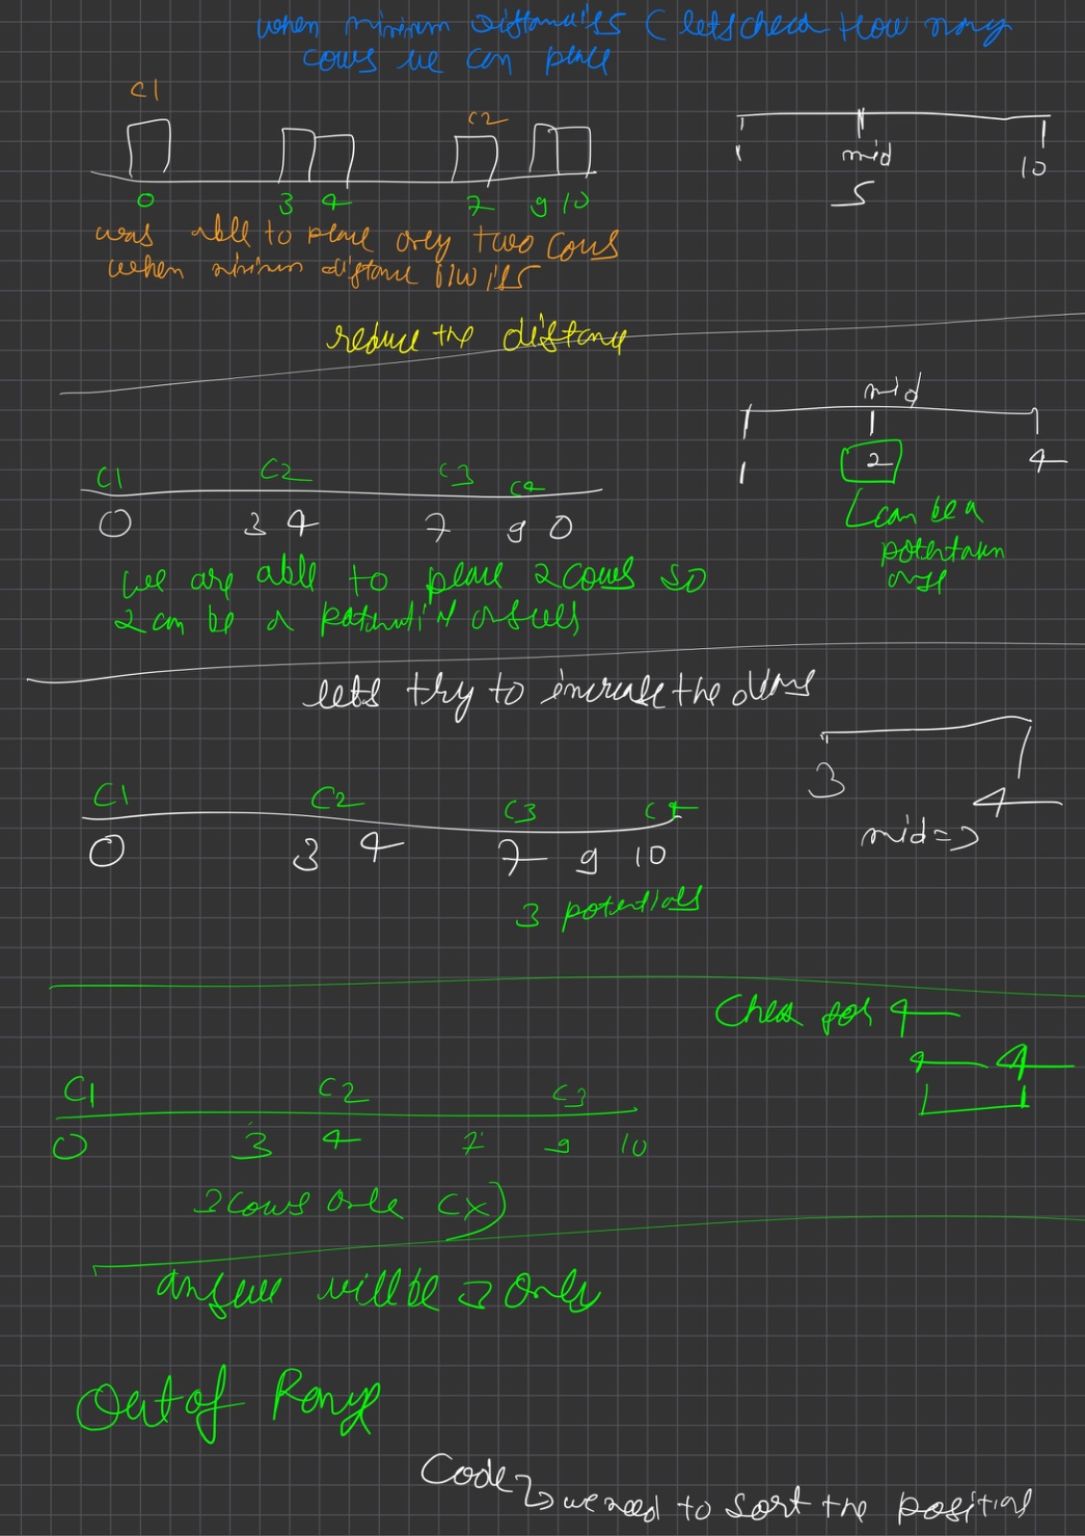 when minimum distance is 5 ( lets check How many
cows we can place
C1
C2
0 3 4 7 9 10
1 mid 10
5
was able to place only two cows
when minimum distance b/w is 5
reduce the distance
mid
1 2 4
C1 C2 C3 C4
0 3 4 7 9 0
can be a
potential
we are able to place 2 cows so
2 can be a potential
lets try to increase the
3 4
mid = 3
C1 C2 C3 C4
0 3 4 7 9 10
3 potentials
Check for 4
4 4
C1 C2 C3
0 3 4 7 9 10
3 cows only (x)
answer will be 3 only
Out of Range
Code
we need to sort the positions